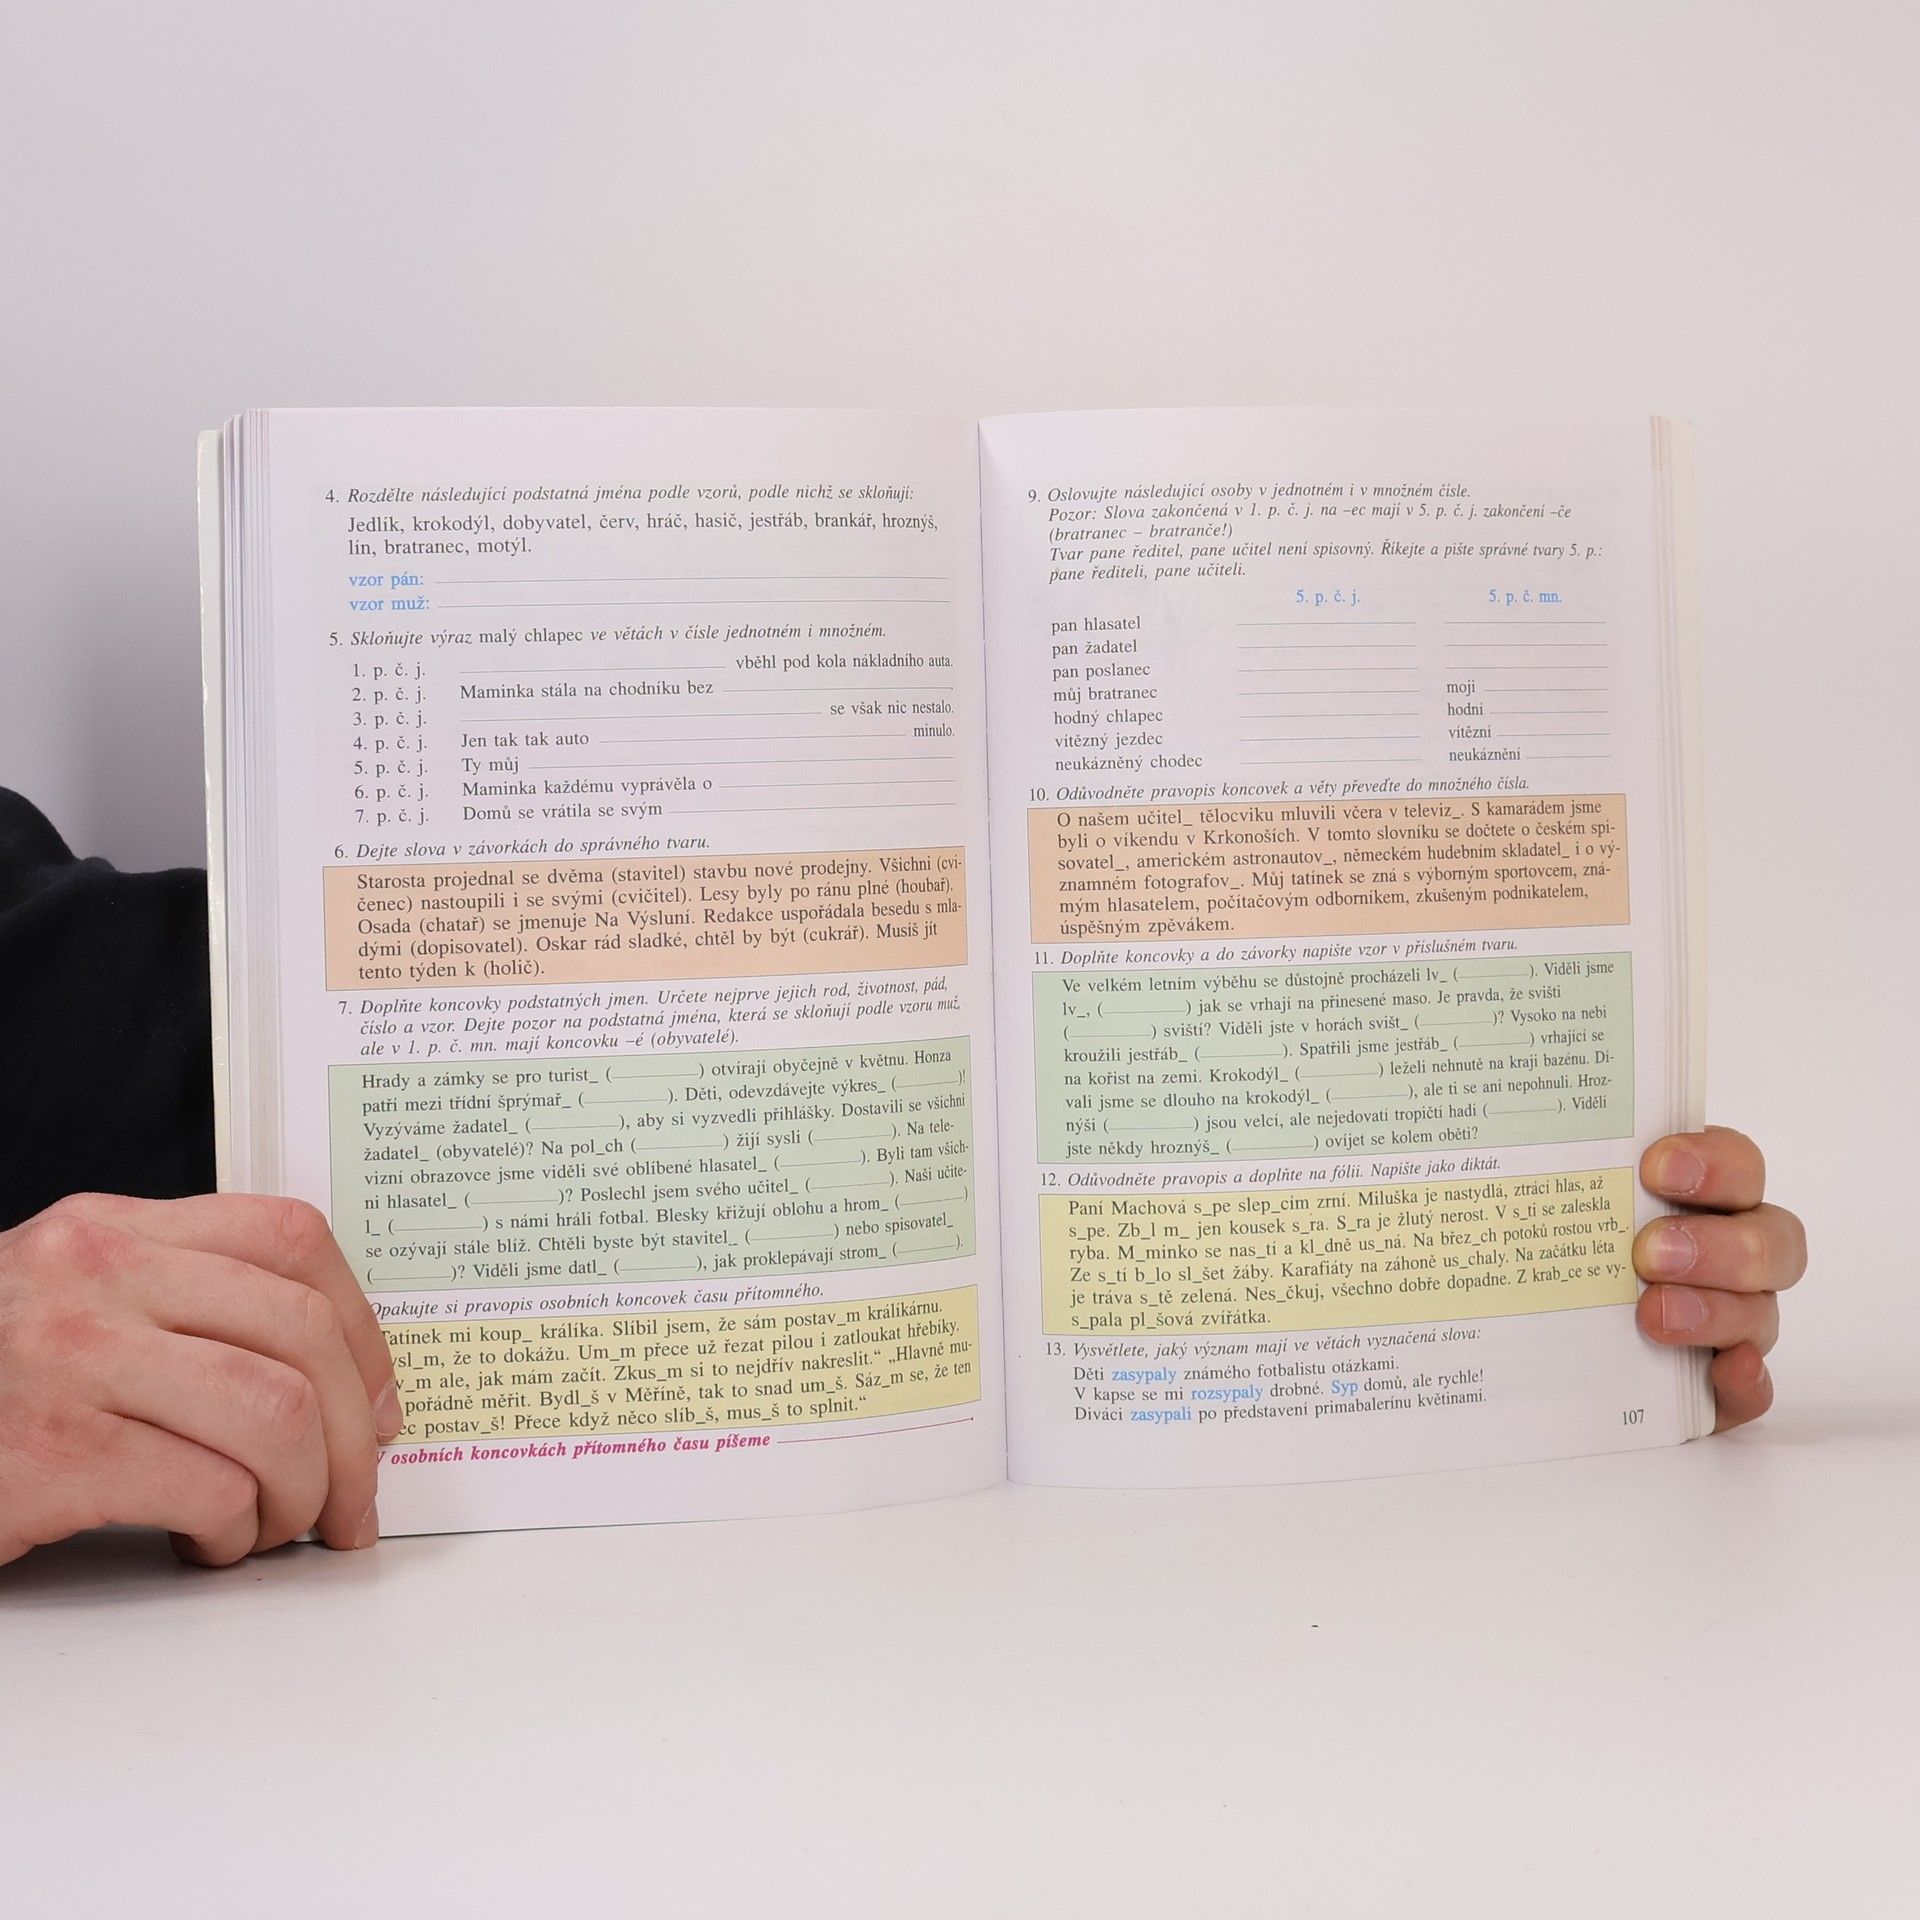 4. Rozdělte následující podstatná jména podle vzorů, podle nichž se skloňují:
Jedlík, krokodýl, dobyvatel, červ, hráč, hasič, jestřáb, brankář, hroznýš,
lín, bratranec, motýl.
vzor pán:
vzor muž:
5. Skloňujte výraz malý chlapec ve větách v čísle jednotném i množném.
1. p. č. j. ________ vběhl pod kola nákladního auta.
2. p. č. j. Maminka stála na chodníku bez ________.
3. p. č. j. ________ se však nic nestalo.
4. p. č. j. Jen tak tak auto ________ minulo.
5. p. č. j. Ty můj ________
6. p. č. j. Maminka každému vyprávěla o ________
7. p. č. j. Domů se vrátila se svým ________
6. Dejte slova v závorkách do správného tvaru.
Starosta projednal se dvěma (stavitel) stavbu nové prodejny. Všichni (cvi-
čenec) nastoupili i se svými (cvičitel). Lesy byly po ránu plné (houbař).
Osada (chatař) se jmenuje Na Výsluní. Redakce uspořádala besedu s mla-
dými (dopisovatel). Oskar rád sladké, chtěl by být (cukrář). Musíš jít
tento týden k (holič).
7. Doplňte koncovky podstatných jmen. Určete nejprve jejich rod, životnost, pád,
číslo a vzor. Dejte pozor na podstatná jména, která se skloňují podle vzoru muž,
ale v 1. p. č. mn. mají koncovku –é (obyvatelé).
Hrady a zámky se pro turist_ (________) otvírají obyčejně v květnu. Honza
patří mezi třídní šprýmař_ (________). Děti, odevzdávejte výkres_ (________)!
Vyzýváme žadatel_ (________), aby si vyzvedli přihlášky. Dostavili se všichni
žadatel_ (obyvatelé)? Na pol_ch (________) žijí sysli (________). Na tele-
vizní obrazovce jsme viděli své oblíbené hlasatel_ (________). Byli tam všich-
ni hlasatel_ (________)? Poslechl jsem svého učitel_ (________). Naši učite-
l_ (________) s námi hráli fotbal. Blesky křižují oblohu a hrom_ (________)
se ozývají stále blíž. Chtěli byste být stavitel_ (________) nebo spisovatel_
(________)? Viděli jsme datl_ (________), jak proklepávají strom_ (________).
Opakujte si pravopis osobních koncovek času přítomného.
Tatínek mi koup_ králíka. Slíbil jsem, že sám postav_m králíkárnu.
ysl_m, že to dokážu. Um_m přece už řezat pilou i zatloukat hřebíky.
v_m ale, jak mám začít. Zkus_m si to nejdřív nakreslit.“ „Hlavně mu-
pořádně měřit. Bydl_š v Měříně, tak to snad um_š. Sáz_m se, že ten
ec postav_š! Přece když něco slíb_š, mus_š to splnit.“
V osobních koncovkách přítomného času píšeme
9. Oslovujte následující osoby v jednotném i v množném čísle.
Pozor: Slova zakončená v 1. p. č. j. na –ec mají v 5. p. č. j. zakončení –če
(bratranec – bratranče!)
Tvar pane ředitel, pane učitel není spisovný. Říkejte a pište správné tvary 5. p.:
pane řediteli, pane učiteli.
5. p. č. j. 5. p. č. mn.
pan hlasatel
pan žadatel
pan poslanec
můj bratranec ________ moji ________
hodný chlapec ________ hodní ________
vítězný jezdec ________ vítězní ________
neukázněný chodec ________ neukáznění ________
10. Odůvodněte pravopis koncovek a věty převeďte do množného čísla.
O našem učitel_ tělocviku mluvili včera v televiz_. S kamarádem jsme
byli o víkendu v Krkonoších. V tomto slovníku se dočtete o českém spi-
sovatel_, americkém astronautov_, německém hudebním skladatel_ i o vý-
znamném fotografov_. Můj tatínek se zná s výborným sportovcem, zná-
mým hlasatelem, počítačovým odborníkem, zkušeným podnikatelem,
úspěšným zpěvákem.
11. Doplňte koncovky a do závorky napište vzor v příslušném tvaru.
Ve velkém letním výběhu se důstojně procházeli lv_ (________). Viděli jsme
lv_, (________) jak se vrhají na přinesené maso. Je pravda, že svišti
(________) sviští? Viděli jste v horách svišt_ (________)? Vysoko na nebi
kroužili jestřáb_ (________). Spatřili jsme jestřáb_ (________) vrhající se
na kořist na zemi. Krokodýl_ (________) leželi nehnutě na kraji bazénu. Dí-
vali jsme se dlouho na krokodýl_ (________), ale ti se ani nepohnuli. Hroz-
nýši (________) jsou velcí, ale nejedovatí tropičtí hadi (________). Viděli
jste někdy hroznýš_ (________) ovíjet se kolem oběti?
12. Odůvodněte pravopis a doplňte na fólii. Napište jako diktát.
Paní Machová s_pe slep_cím zrní. Miluška je nastydlá, ztrácí hlas, až
s_pe. Zb_l m_ jen kousek s_ra. S_ra je žlutý nerost. V s_ti se zaleskla
ryba. M_minko se nas_tí a kl_dně us_ná. Na břez_ch potoků rostou vrb_.
Ze s_tí b_lo sl_šet žáby. Karafiáty na záhoně us_chaly. Na začátku léta
je tráva s_tě zelená. Nes_čkuj, všechno dobře dopadne. Z krab_ce se vy-
s_pala pl_šová zvířátka.
13. Vysvětlete, jaký význam mají ve větách vyznačená slova:
Děti zasypaly známého fotbalistu otázkami.
V kapse se mi rozsypaly drobné. Syp domů, ale rychle!
Diváci zasypali po představení primabalerínu květinami.
107